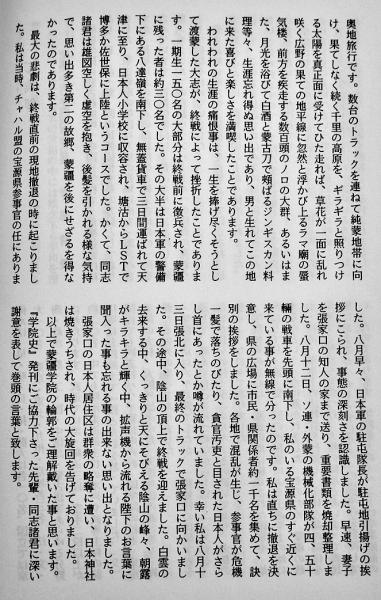 奥地旅行です。数台のトラックを連ねて純蒙地帯に向
け、果てしなく続く千里の高原を、ギラギラと照りつけ
る太陽を真正面に受けてひた走れば、草花が一面に乱れ
咲く広野の果ての地平線に忽然と浮かび上るラマ廟の蜃
気楼、前方を疾走する数百頭のノロの大群、あるいはま
た、月光を浴びて白酒と蒙古刀で頬ばるジンギスカン料
理等々、生涯忘れ得ぬ思い出であり、男と生れてこの地
に来た喜びと楽しさを満喫したことであります。
われわれの生涯の痛恨事は、一生を捧げ尽くそうとし
て渡蒙した大志が、終戦によって挫折したことでありま
す。一期生一五〇名の大部分は終戦前に徴兵され、蒙疆
に残った者は約三〇名でした。その大半は日本軍の警備
下にある八達嶺を南下し、無蓋貨車で三日間運ばれて天
津に至り、日本人小学校に収容され、塘沽からLSTで
博多か佐世保に上陸というコースでした。かくて、同志
諸君は雄図空しく虚空を抱き、後髪を引かれる様な気持
で、思い出多き第二の故郷、蒙疆を後にせざるを得な
かったのであります。
最大の悲劇は、終戦直前の現地撤退の時に起こりまし
た。私は当時、チャハル盟の宝源県参事官の任にありま
した。八月早々、日本軍の駐屯隊長が駐屯地引揚げの挨
拶にこられ、事態の深刻さを認識しました。早速、妻子
を張家口の知人の家まで送り、重要書類を焼却整理しま
した。八月十二日、ソ連・外蒙の機械化部隊が四、五十
輛の戦車を先頭に南下し、私のいる宝源県のすぐ近くに
来ている事が無線で分ったのです。私は直ちに撤退を決
意し、県の広場に市民・県関係者約一千名を集めて、訣
別の挨拶をしました。各地で混乱が生じ、参事官が危機
一髪で落ちのびたり、貪官汚吏と目された日本人がさら
し首にあったとか噂が流れていました。幸い私は八月十
三日張北に入り、最終のトラックで張家口に向かいまし
た。その途中、陰山の頂上で終戦を迎えました。白雲の
去来する中、くっきりと天にそびえる陰山の峰々、朝露
がキラキラと輝く中、拡声機から流れる陛下のお言葉に
聞入った事も忘れる事の出来ない思い出となりました。
張家口の日本人居住区は群衆の略奪に遭い、日本神社
は焼きうちされ、時代の大旋回を告げておりました。
以上で蒙疆学院の輪郭をご理解戴いた事と思います。
『学院史』発刊にご協力下さった先輩・同志諸君に深い
謝意を表して巻頭の言葉と致します。